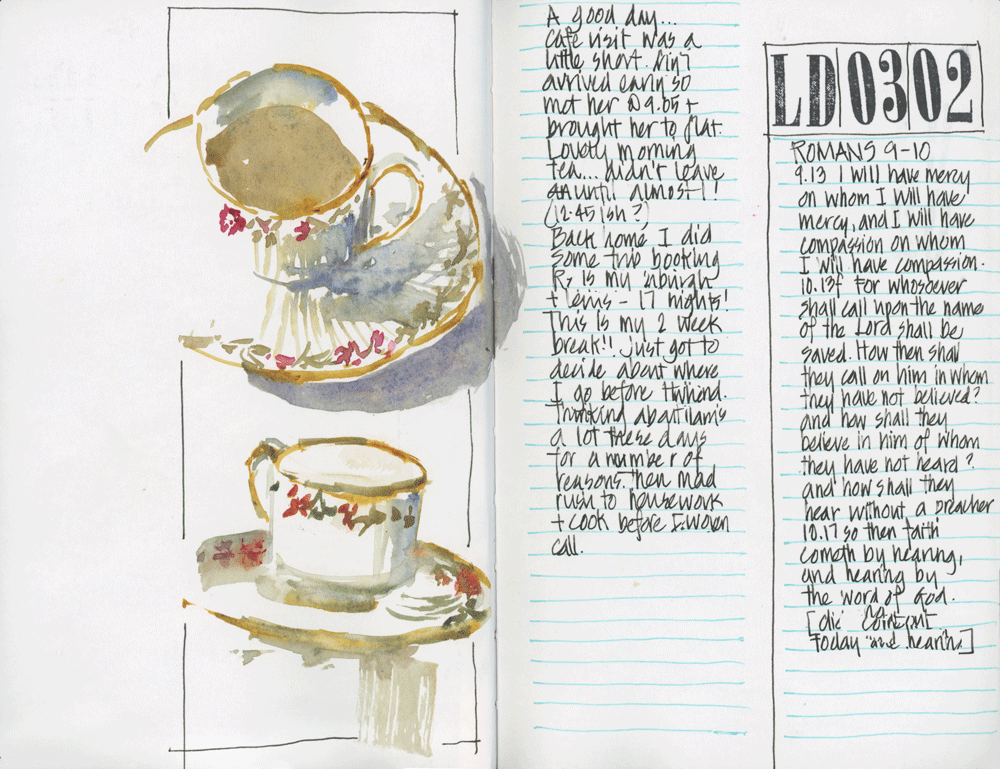 A good day...
Cafe visit was a
little short.
arrived early so
met her @ 9.05 +
brought her to flat.
Lovely morning
tea... didn't leave
until almost 1!
(12.45 ish?)
Back home I did
some trip booking
is my
+ Lewis - 17 nights!
This is my 2 week
break!! just got to
decide about where
I go before
Thinking about
a lot these days
for a number of
reasons. Then mad
rush to housework
+ cook before
call.
LD0302
ROMANS 9-10
9.13 I will have mercy
on whom I will have
mercy, and I will have
compassion on whom
I will have compassion.
10.13f For whosoever
shall call upon the name
of the Lord shall be
saved. How then shall
they call on him in whom
they have not believed?
and how shall they
believe in him of whom
they have not heard?
and how shall they
hear without a preacher
10.17 so then faith
cometh by hearing,
and hearing by
the word of God.
Today and hearing]